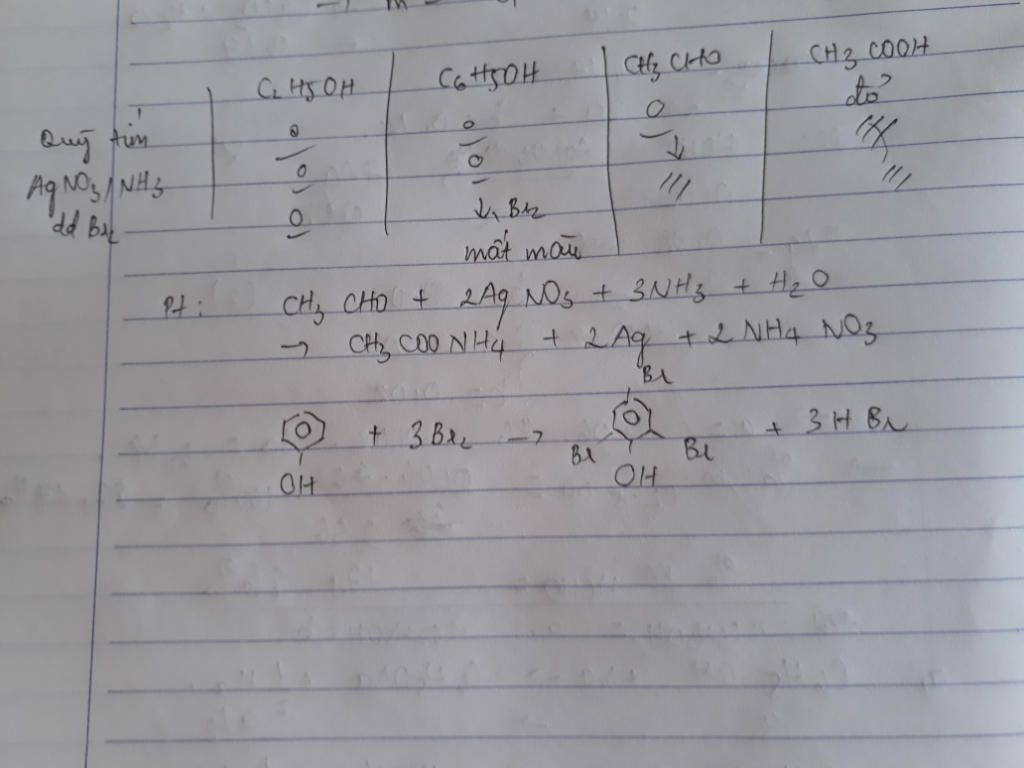 C2H5OH C6H5OH CH3CHO CH3COOH
Quỳ tím o o o đỏ
AgNO3/NH3 o o ↓ ///
dd Br2 o ↓, Br2 /// ///
mất màu
Pt: CH3CHO + 2AgNO3 + 3NH3 + H2O
→ CH3COONH4 + 2Ag + 2NH4NO3
Br
+ 3Br2 → Br Br + 3HBr
OH OH